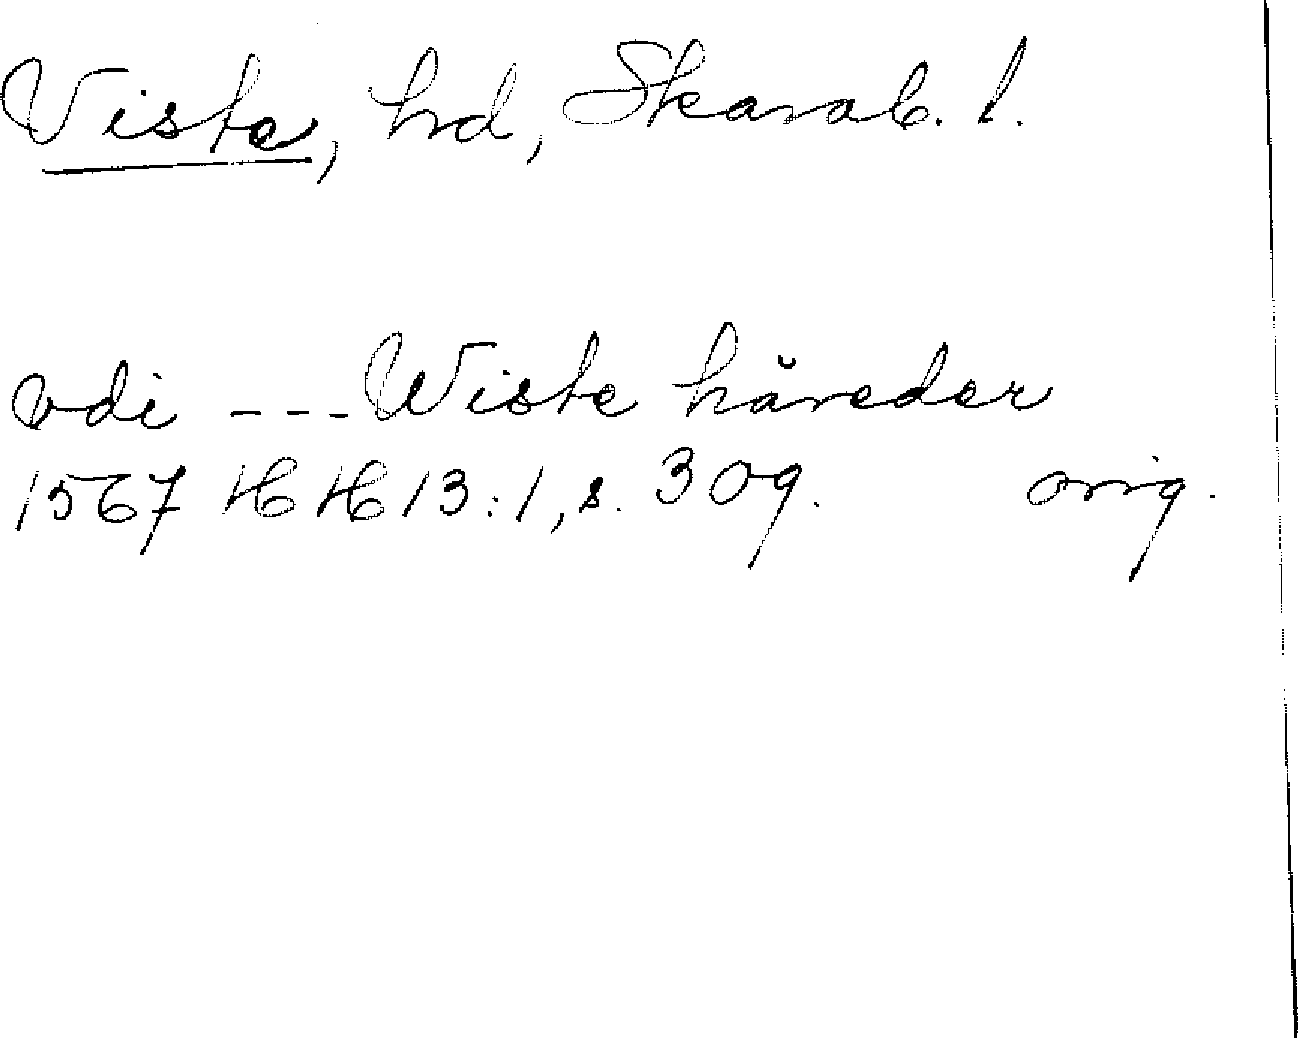 Viste, hd, Skarab. l.
vdi --- Wiste håreder
1567 HH 13:1, s. 309. orig.